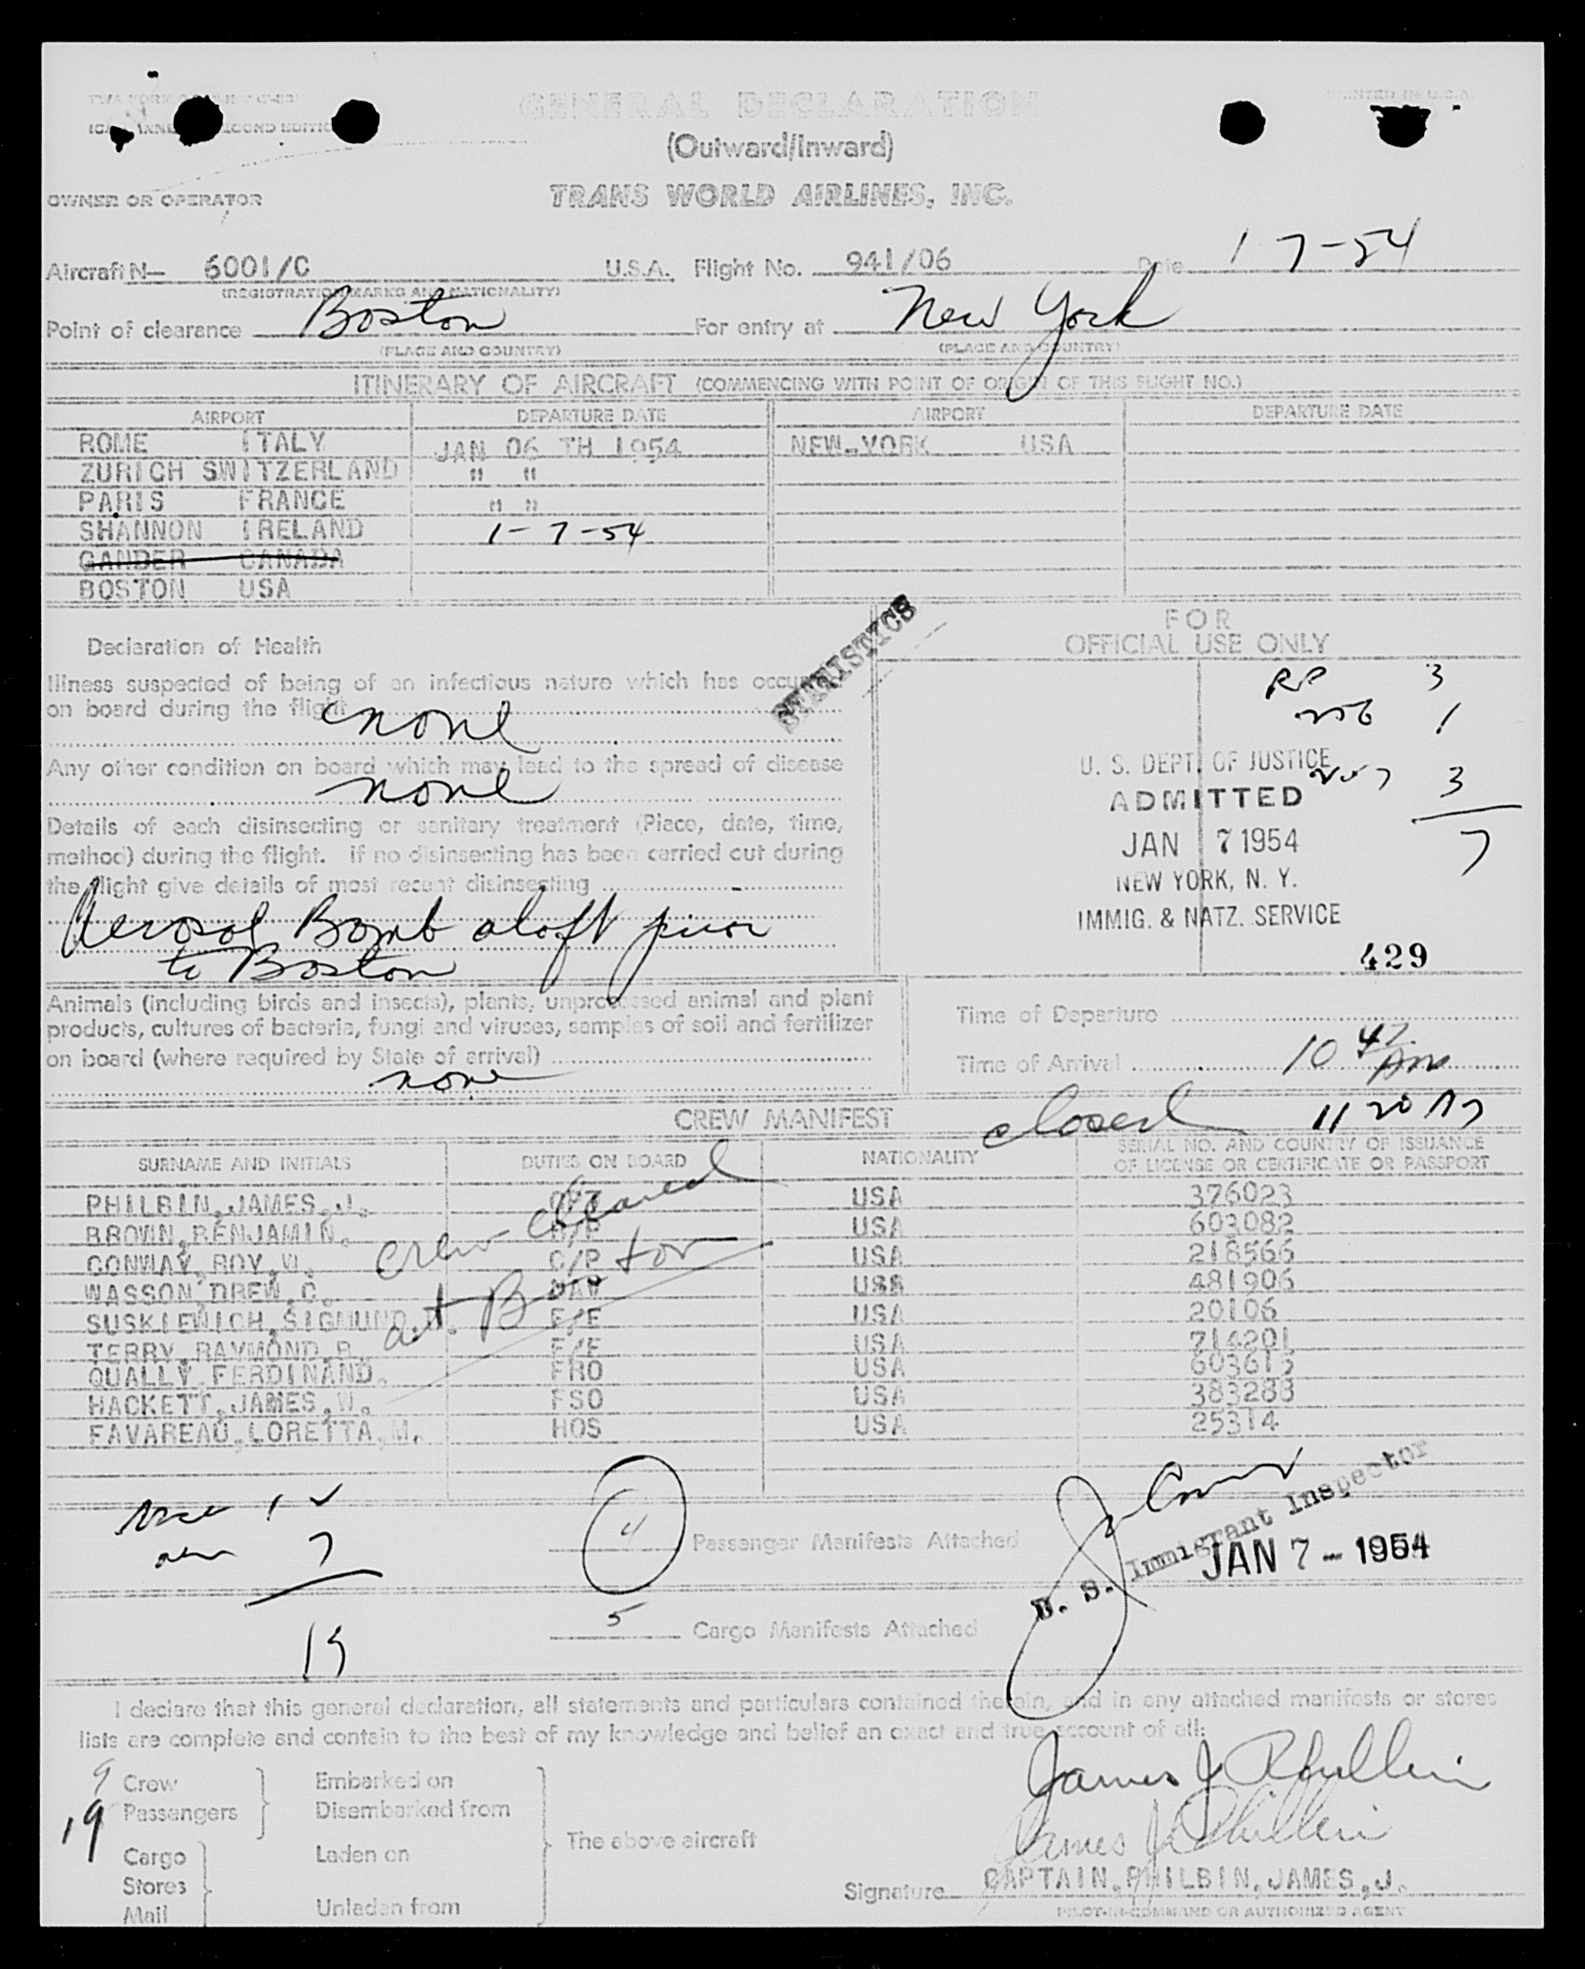 GENERAL DECLARATION
PRINTED IN U.S.A.
SECOND EDITION
(Outward/Inward)
OWNER OR OPERATOR
TRANS WORLD AIRLINES, INC.
Aircraft N— 6001/C U.S.A. Flight No. 941/06 Date 1 7-54
(REGISTRATION MARKS AND NATIONALITY)
Point of clearance Boston For entry at New York
(PLACE AND COUNTRY) (PLACE AND COUNTRY)
ITINERARY OF AIRCRAFT (COMMENCING WITH POINT OF ORIGIN OF THIS FLIGHT NO.)
AIRPORT DEPARTURE DATE AIRPORT DEPARTURE DATE
ROME ITALY JAN 06 TH 1954 NEW-YORK USA
ZURICH SWITZERLAND " "
PARIS FRANCE " "
SHANNON IRELAND 1-7-54
GANDER CANADA
BOSTON USA
STATISTICS
FOR
OFFICIAL USE ONLY
Declaration of Health
Illness suspected of being of an infectious nature which has occurred
on board during the flight none
Any other condition on board which may lead to the spread of disease
none
Details of each disinsecting or sanitary treatment (Place, date, time,
method) during the flight. If no disinsecting has been carried out during
the flight give details of most recent disinsecting
Aerosol Bomb aloft prior
to Boston
RP 3
1
3
7
U. S. DEPT. OF JUSTICE
ADMITTED
JAN 7 1954
NEW YORK, N. Y.
IMMIG. & NATZ. SERVICE
429
Animals (including birds and insects), plants, unprocessed animal and plant
products, cultures of bacteria, fungi and viruses, samples of soil and fertilizer
on board (where required by State of arrival)
none
Time of Departure
Time of Arrival 10 47 AM
closed 11 20
CREW MANIFEST
SURNAME AND INITIALS DUTIES ON BOARD NATIONALITY SERIAL NO. AND COUNTRY OF ISSUANCE
OF LICENSE OR CERTIFICATE OR PASSPORT
PHILBIN,JAMES,J. USA 376023
BROWN,BENJAMIN. USA 603082
CONWAY,ROY,W. C/P USA 218566
WASSON,DREW,C. NAV USA 481906
SUSKIEWICH,SIGMUND F/E USA 20106
TERRY,RAYMOND,R. F/E USA 714201
QUALLY,FERDINAND. FRO USA 603613
HACKETT,JAMES,W. FSO USA 383288
FAVAREAU,LORETTA,M. HOS USA 25314
crew cleared
at Boston
12
7
19
4 Passenger Manifests Attached
5 Cargo Manifests Attached
U. S. Immigrant Inspector
JAN 7 - 1954
I declare that this general declaration, all statements and particulars contained therein, and in any attached manifests or stores
lists are complete and contain to the best of my knowledge and belief an exact and true account of all:
9 Crew Embarked on
19 Passengers Disembarked from
The above aircraft
Cargo Laden on
Stores
Mail Unladen from
James J Philbin
James J Philbin
Signature CAPTAIN,PHILBIN,JAMES,J.
PILOT-IN-COMMAND OR AUTHORIZED AGENT